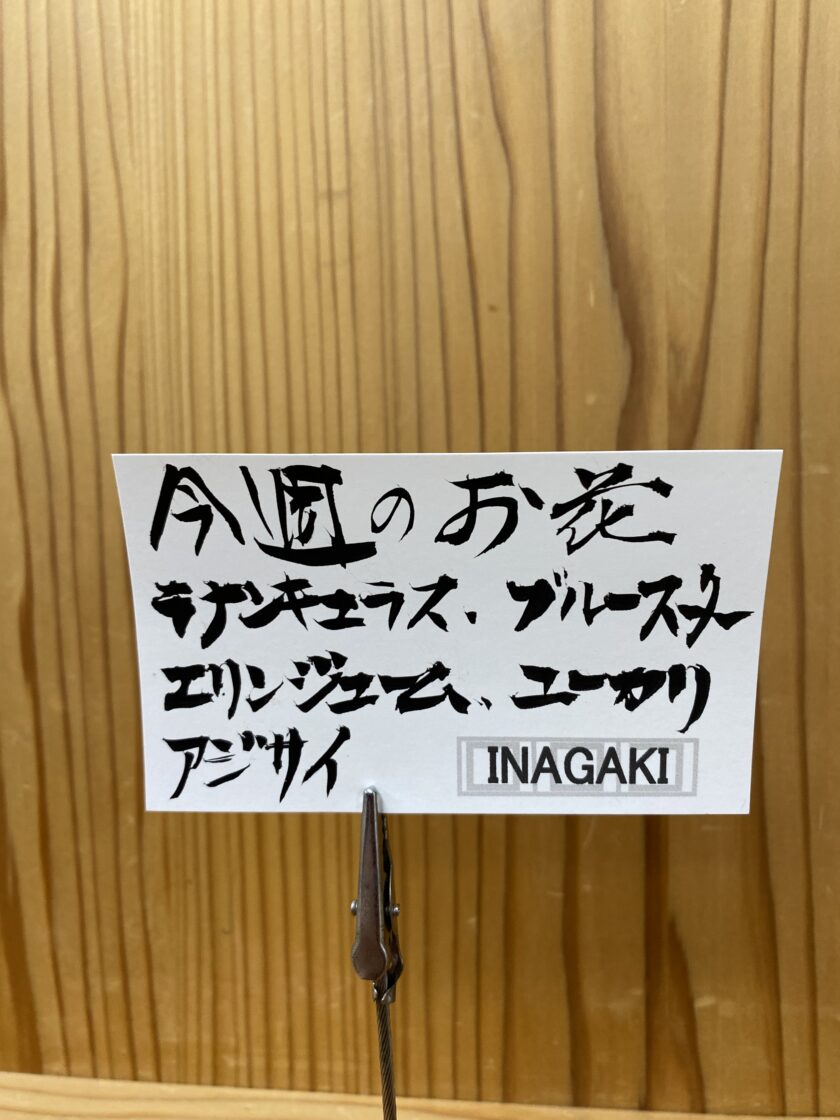 今週のお花
ラナンキュラス、ブルースター
エリンジューム、ユーカリ
アジサイ
INAGAKI